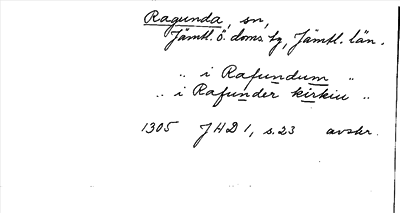 Ragunda, sn,
Jämtl. ö. doms. fg, Jämtl. län.
„ i Rafundum „
„ i Rafunder kirkiu „
1305 JHD 1, s. 23 avskr.